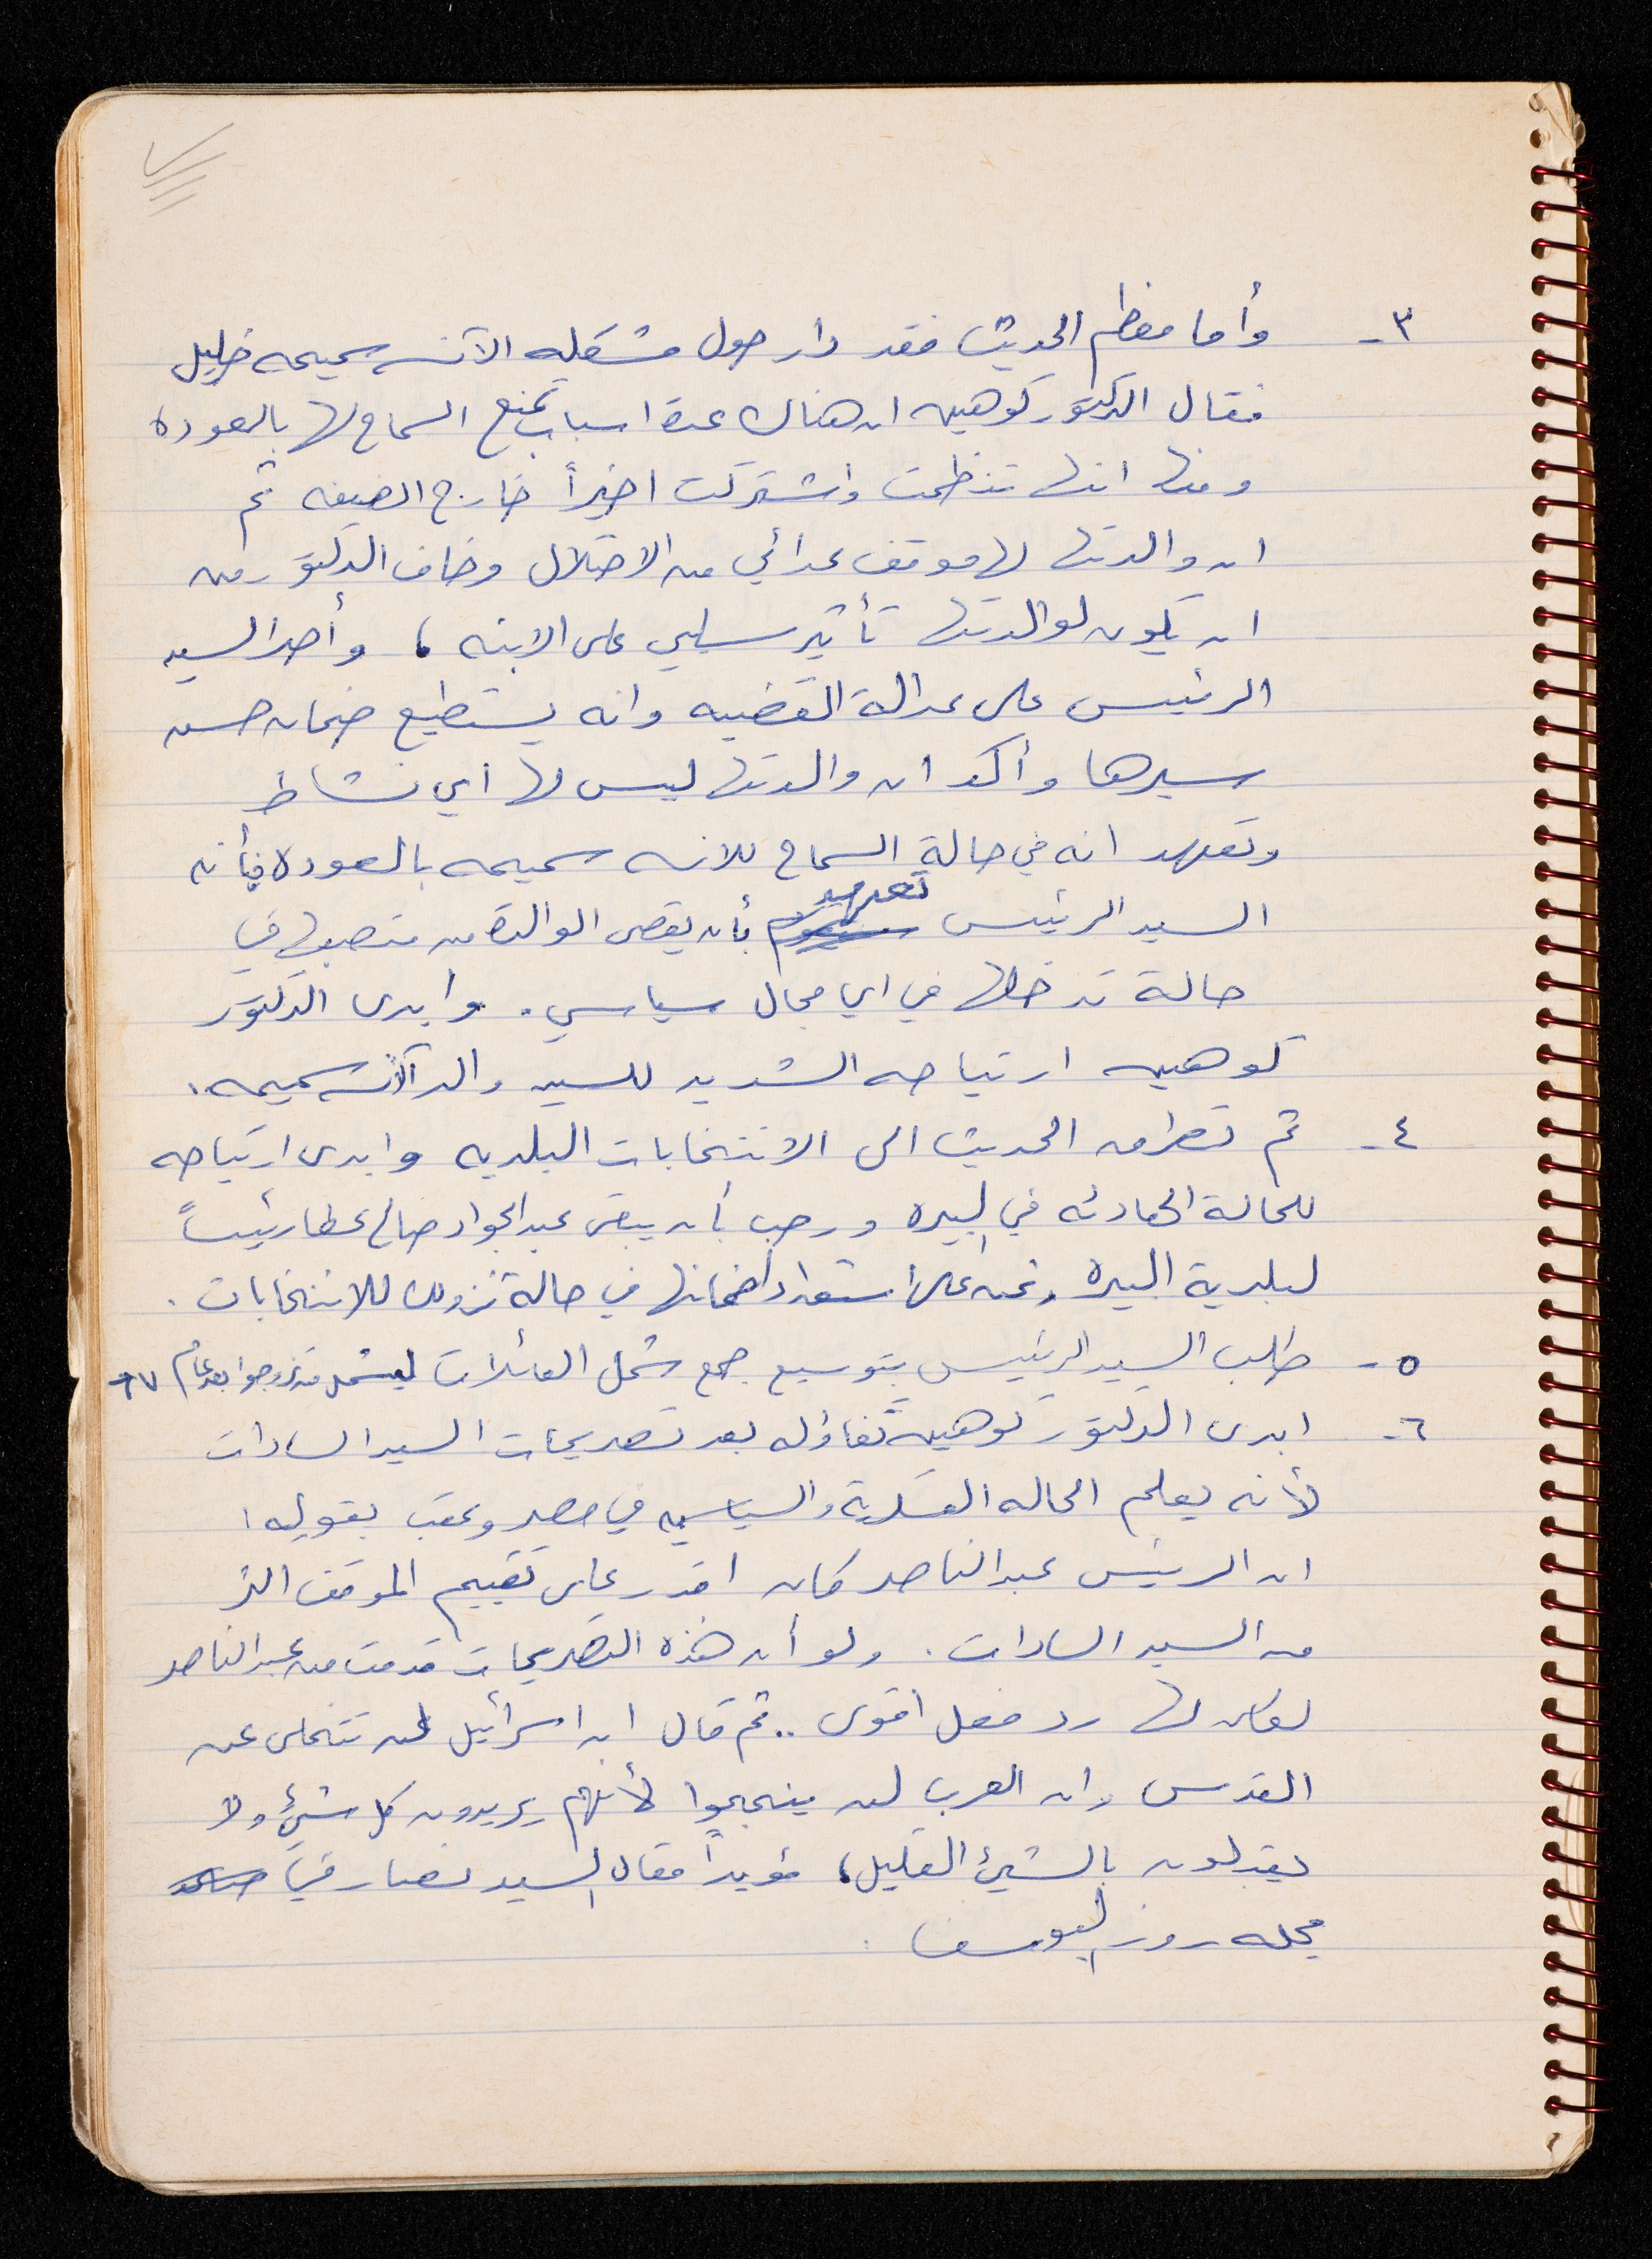 ٣- وأما معظم الحديث فقد دار حول مشكله الآنسه سميحه خليل
فقال الدكتور كوهين ان هناك عدة اسباب تمنع السماح لها بالعوده
ومنها انها تنظمت واشتركت اخيراً خارج الضفه ثم
ان والدتها لها موقف عدائي من الاحتلال وخاف الدكتور من
ان يكون لوالدتها تأثير سلبي على الابنه ، وأصر السيد
الرئيس على عدالة القضيه وانه يستطيع ضمان حسن
سيرها وأكد ان والدتها ليس لها اي نشاط
وتعهد انه في حالة السماح للانسه سميحه بالعوده فأنه
السيد الرئيس تعهد بأن يقصى الوالدة من منصبها في
حالة تدخلها في اي مجال سياسي . وابدى الدكتور
كوهين ارتياحه الشديد للسيد والد الآنسه سميحه .
٤- ثم تطرق الحديث الى الانتخابات البلديه وابدى ارتياحه
للحالة الهادئه في البيره ورحب بأن يبقى عبد الجواد صالح عطا رئيساً
لبلدية البيره ونحن على استعداد لضمانها في حالة نزوله للانتخابات .
٥- طلب السيد الرئيس بتوسيع جمع شمل العائلات ليشمل من تزوجوا بعد عام ٦٧
٦- ابدى الدكتور كوهين تفاؤله بعد تصريحات السيد السادات
لأنه يعلم الحاله العسكرية والسياسيه في مصر وعقب بقوله :
ان الرئيس عبد الناصر كان اقدر على تقييم الموقف اكثر
من السيد السادات . ولو أن هذه التصريحات قدمت من عبد الناصر
لكان لها رد فعل اقوى .. ثم قال ان اسرائيل لن تتخلى عن
القدس وان العرب لن ينجحوا لأنهم يريدون كل شئ ولا
يقبلون بالشئ القليل ، مؤيداً مقال السيد نصار في
مجله روز اليوسف .